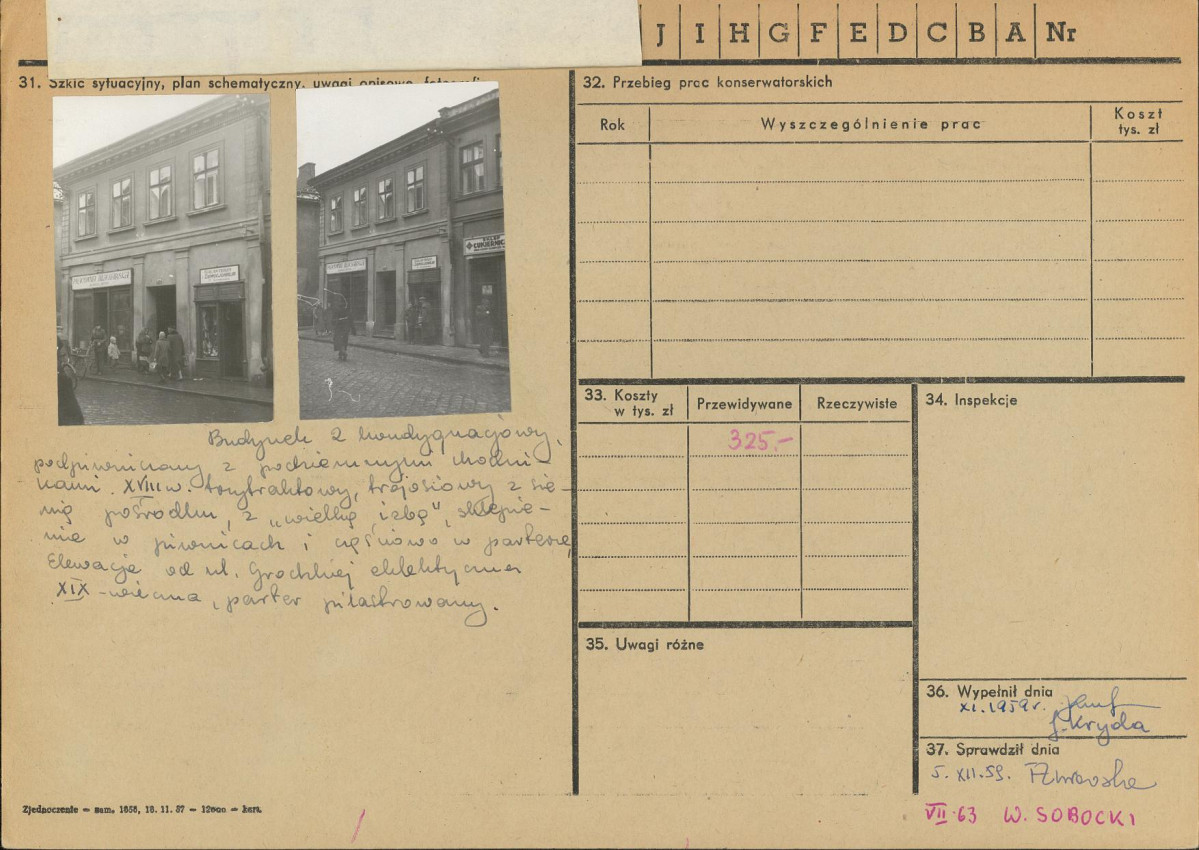 J I H G F E D C B A Nr
31. Szkic sytuacyjny, plan schematyczny, uwagi opisowe, fotografi
CUKIERNIC
Budynek 2 kondygnacjowy,
podpiwniczony z podziemnymi chodni-
kami. XVIII w. trzytraktowy, trójosiowy z sie-
nią pośrodku, z „wielką izbą", sklepie-
nie w piwnicach i częściowo w parterze,
Elewacja od ul. Grodzkiej eklektyczna
XIX-wieczna, parter pilastrowany.
Zjednoczenie — zam. 1858, 15. 11. 57 — 12000 — kart.
32. Przebieg prac konserwatorskich
Rok Wyszczególnienie prac Koszt
tys. zł
33. Koszty
w tys. zł Przewidywane Rzeczywiste
325.-
34. Inspekcje
35. Uwagi różne
36. Wypełnił dnia
XI. 1959r.
J. Kryda
37. Sprawdził dnia
5. XII. 59.
VII-63 W. SOBOCKI